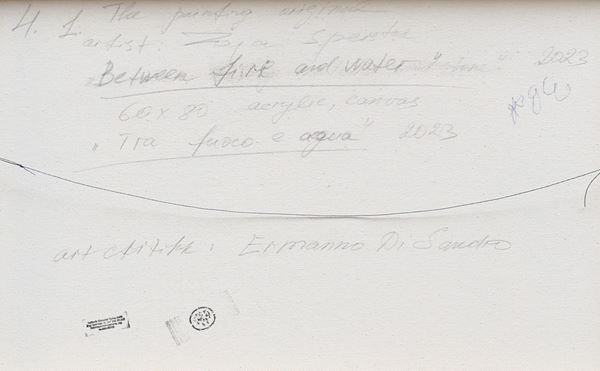 4. 1. The painting original
artist: Zoja Sperstue
„Between fire and water" 2023
60 x 80 acrylic, canvas
„Tra fuoco e agua" 2023
art critike: Ermanno Di Sandro